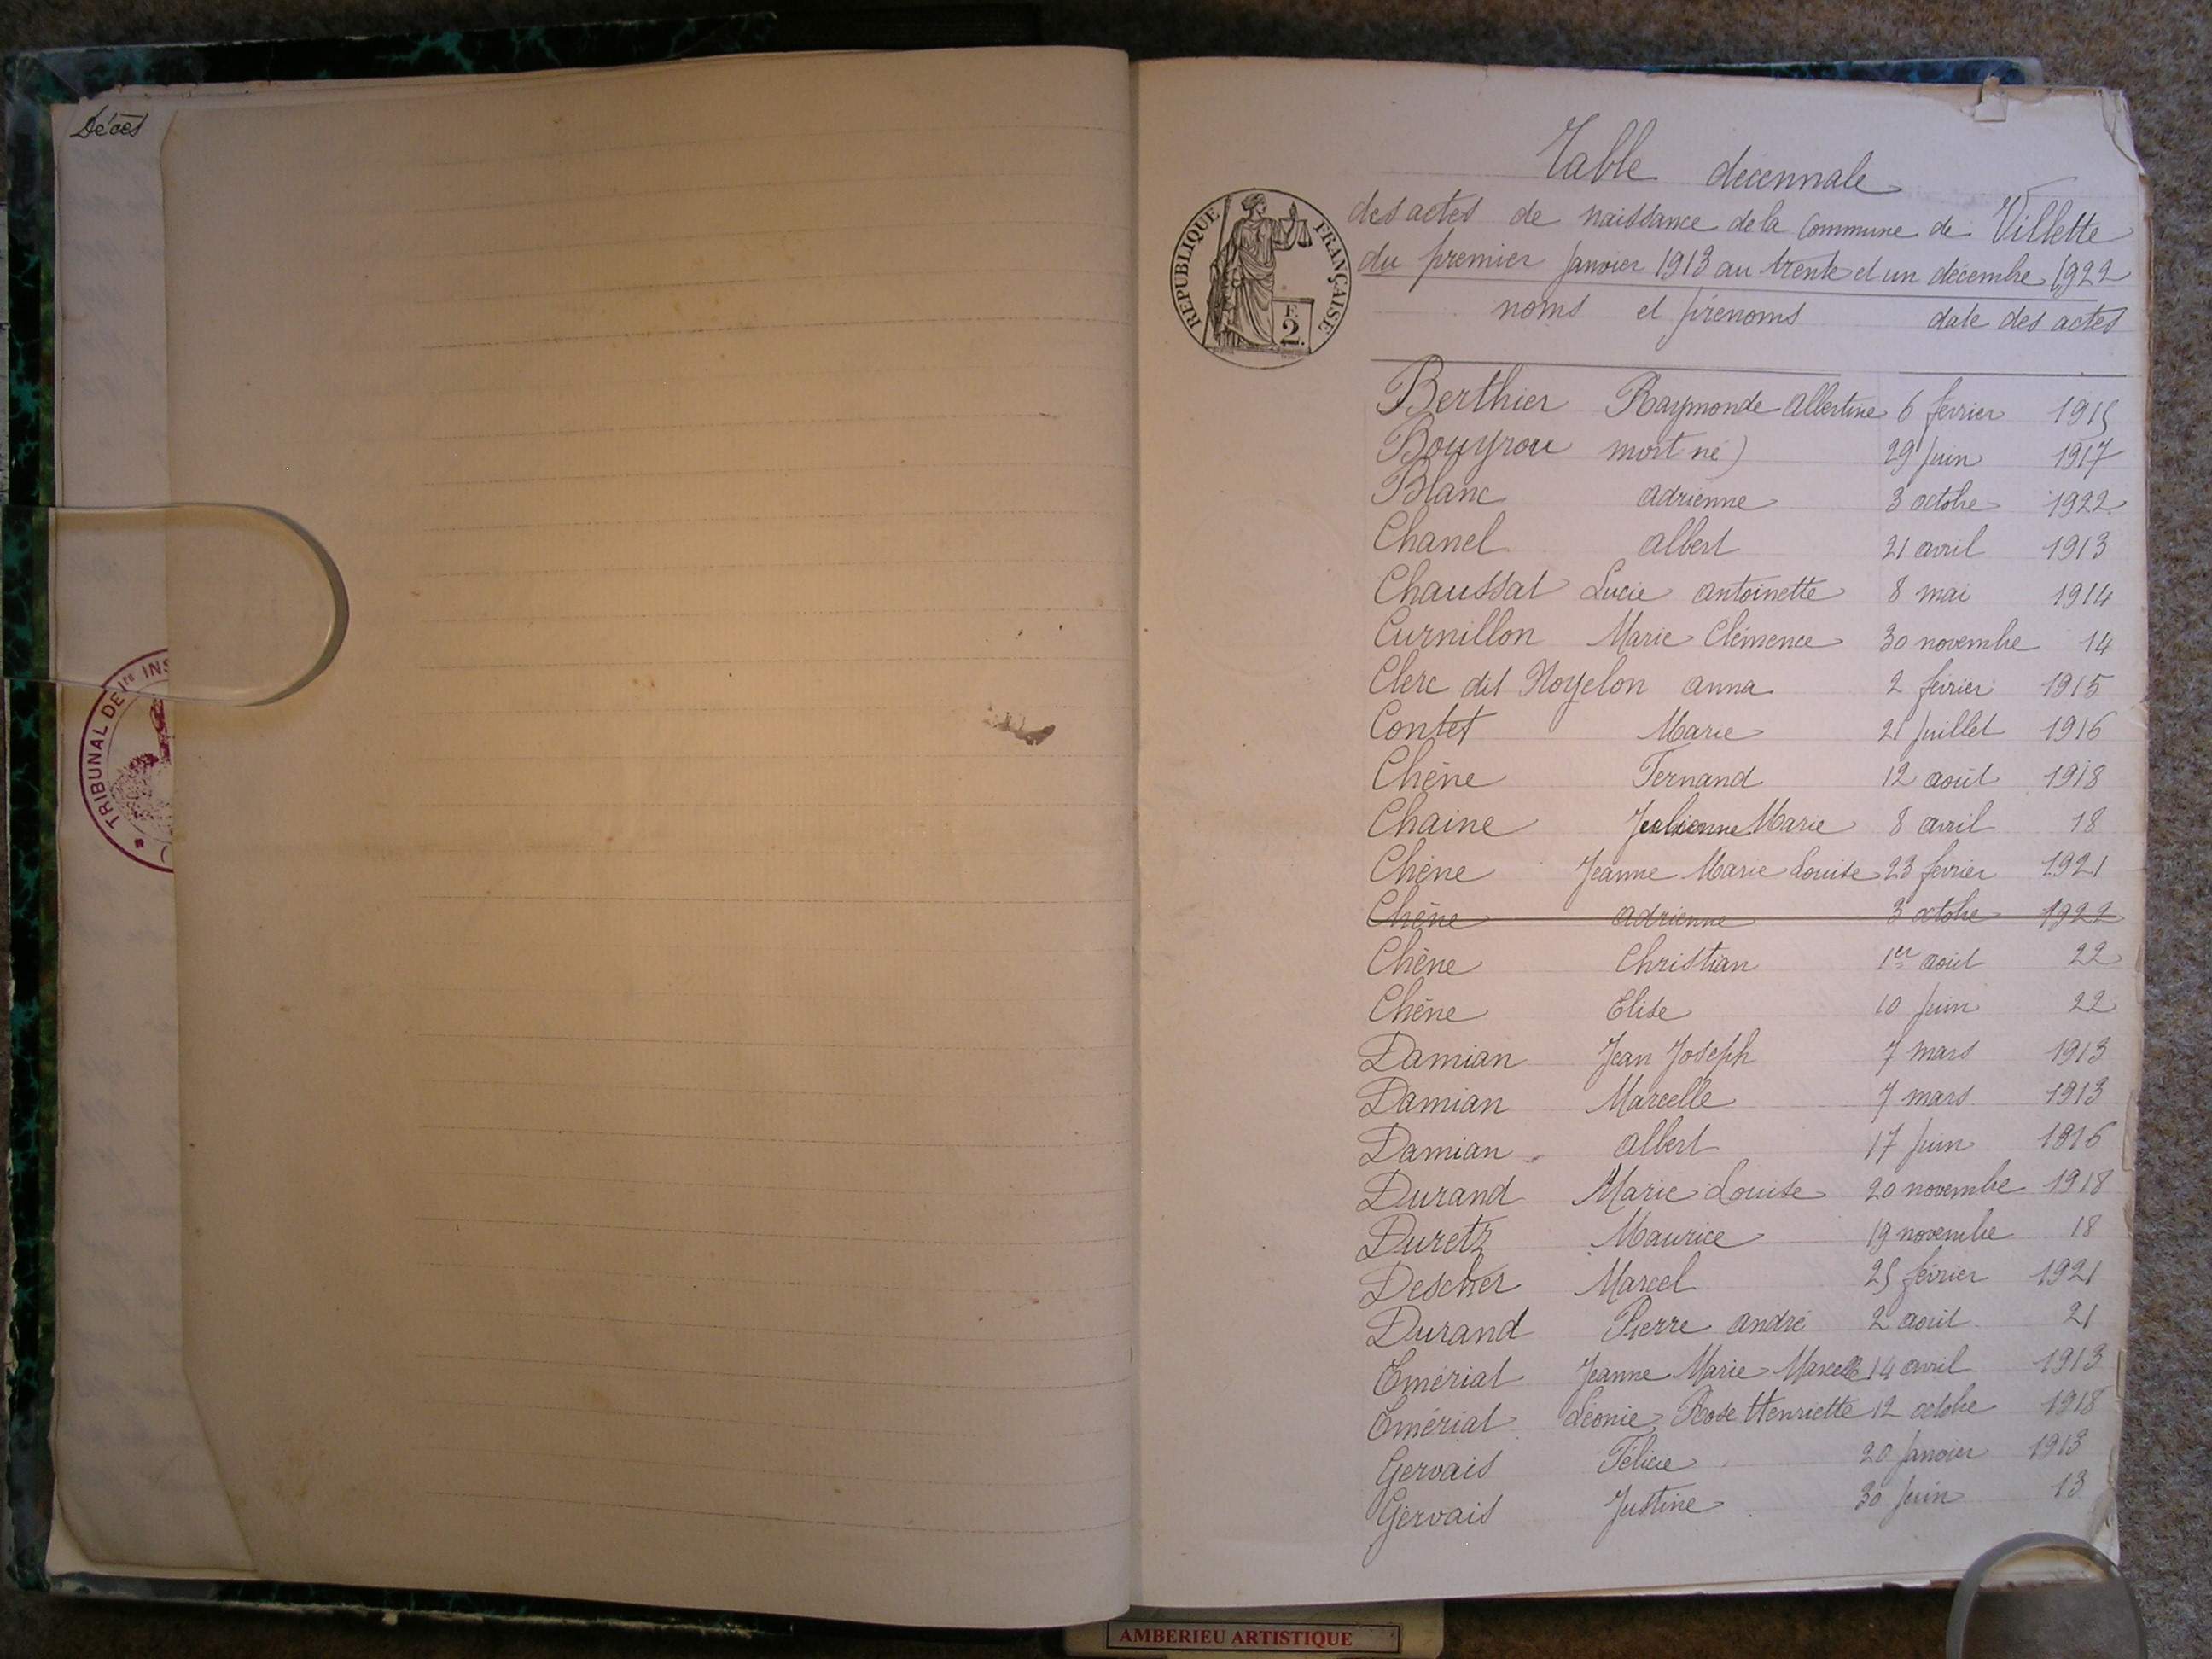 Décès
TRIBUNAL DE 1re INS
Table décennale
des actes de naissance de la commune de Villette
du premier Janvier 1913 au trente et un décembre 1922
REPUBLIQUE FRANÇAISE
F.
2.
noms et prénoms date des actes
Berthier Raymonde Albertine 6 février 1915
Bouyrou mort né) 29 Juin 1917
Blanc Adrienne 3 octobre 1922
Chanel Albert 21 avril 1913
Chaussat Lucie Antoinette 8 mai 1914
Curnillon Marie Clémence 30 novembre 14
Clerc dit Noyelon Anna 2 février 1915
Contet Marie 21 Juillet 1916
Chêne Fernand 12 août 1918
Chaine Marie 8 avril 18
Chêne Jeanne Marie Louise 23 février 1921
Chêne Adrienne 3 octobre 1922
Chêne Christian 1er août 22
Chêne Elise 10 Juin 22
Damian Jean Joseph 7 mars 1913
Damian Marcelle 7 mars 1913
Damian Albert 17 Juin 1916
Durand Marie Louise 20 novembre 1918
Duretz Maurice 19 novembre 18
Descher Marcel 25 février 1921
Durand Pierre André 2 août 21
Emériat Jeanne Marie Marcelle 14 avril 1913
Emériat Léonie Rose Henriette 12 octobre 1918
Gervais Félicie 20 Janvier 1913
Gervais Justine 30 Juin 13
AMBERIEU ARTISTIQUE